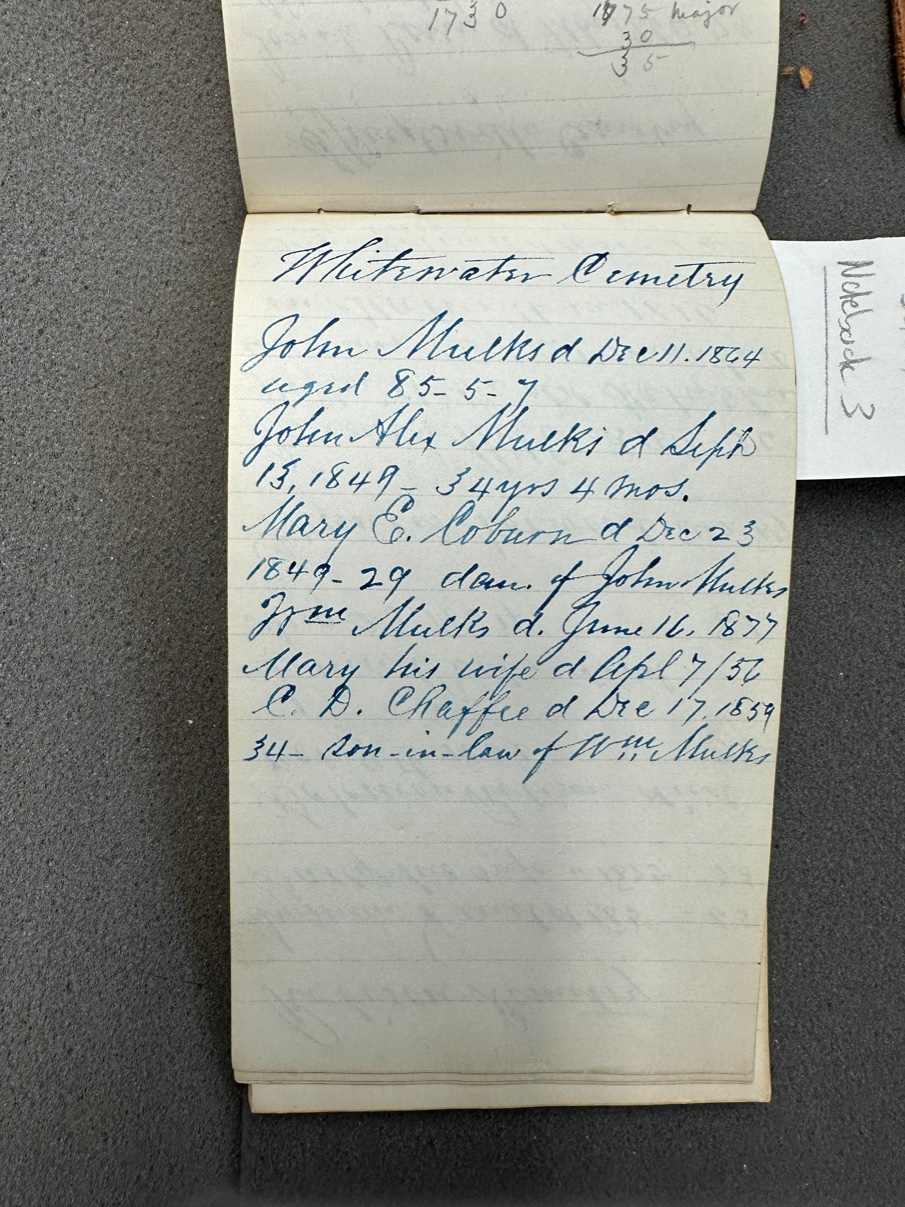 1730
1775 major
30
35
Whitewater Cemetry
John Mulks d Dec 11. 1864
aged 85-5-7
John Alex Mulks d Sept
13, 1849 - 34 yrs 4 mos.
Mary E. Coburn d Dec 23
1849-29 dau. of John Mulks
Wm Mulks d. June 16, 1877
Mary his wife d Apl 7/56
C. D. Chaffee d Dec 17, 1859
34- son-in-law of Wm Mulks
Notebook 3